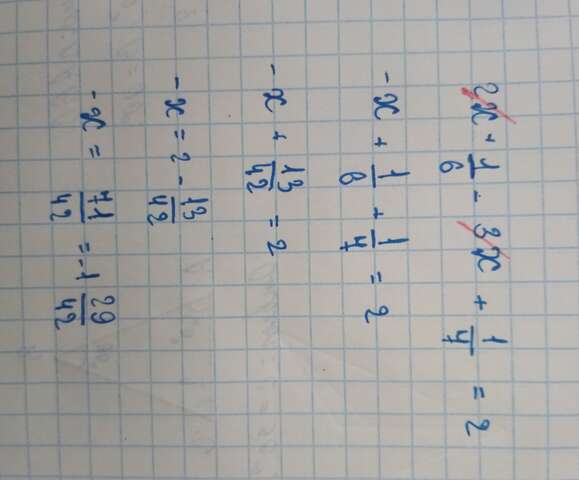 2x + 1/6 - 3x + 1/7 = 2
-x + 1/6 + 1/7 = 2
-x + 13/42 = 2
-x = 2 - 13/42
-x = 71/42 = -1 29/42